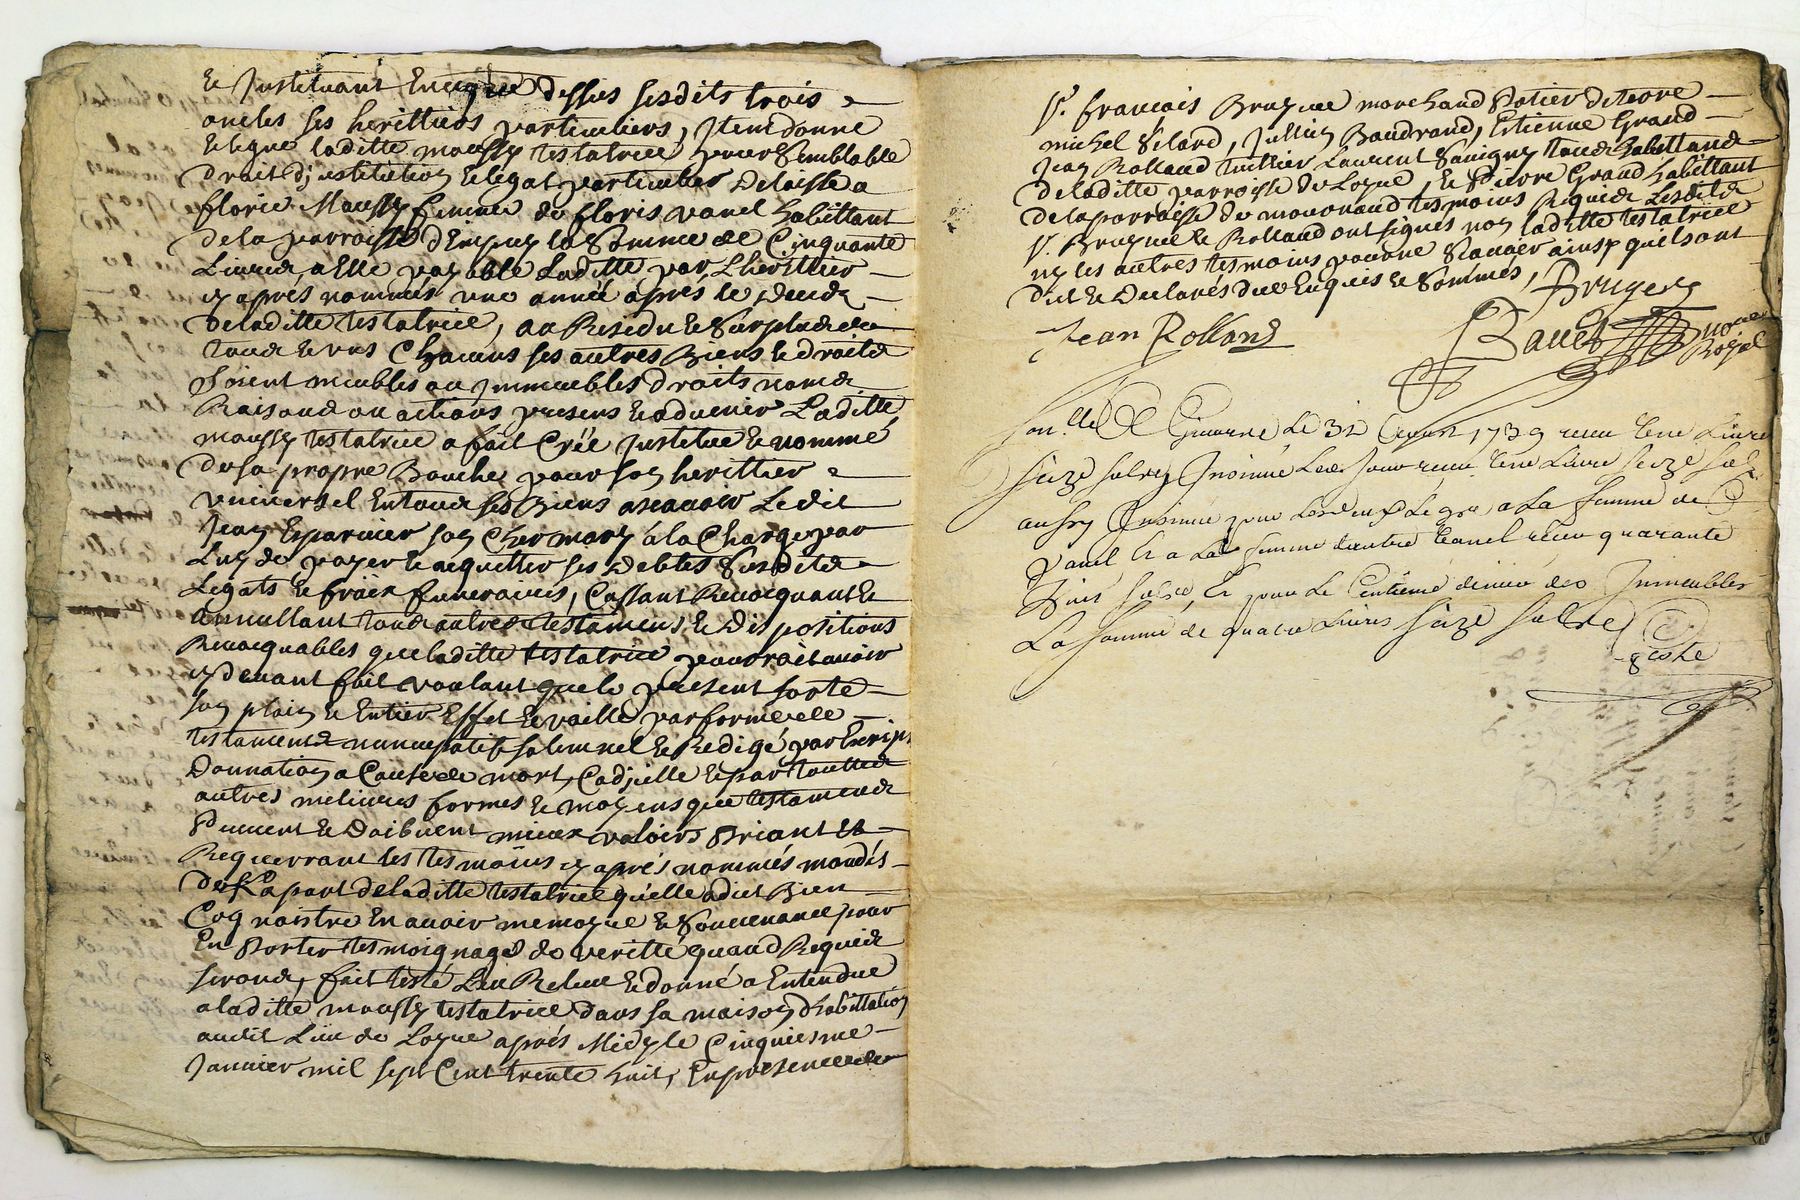 et Instituant En ce que dessus sesdits trois
oncles ses herittiers particuliers, Item donne
et legue laditte moussy testatrice, pour semblable
droit d'institution et legat particulier delaisse a
florie Moussy femme de floris vanel habittant
de la parroisse la somme de Cinquante
Livres, a Elle payable laditte par Lherittier
cy aprés nommés une année aprés le deceds
de laditte testatrice, au Residu et surplus de
tous et uns Chacuns ses autres Biens et droits
soient meubles ou immeubles droits noms
Raisons ou actions presens et advenir Laditte
moussy testatrice a fait Créé Institué et nommé
de sa propre Bouche pour son herittier
universel En tous ses Biens ascavoir Ledit
Jean Esparvier son Cher mary a la Charge par
Luy de payer et acquitter ses debtes susdits
Legats et fraix funeraires, Cassant Revocquant et
annullant tous autres testamens et dispositions
Revocquables que laditte testatrice pourroit avoir
cy devant fait voulant que le present sorte
son plain et Entier Effet et vaille par forme de
testament nuncupatif solemnel et Redigé par Escript
Donnation a Cause de mort, Codicille et par touttes
autres melieures formes et moyens que testamens
peuvent et doibvent mieux valoirs priant et
Requerrant les tesmoins cy aprés nommés mandés
de la part de laditte testatrice qu'elle a dict Bien
Cognoistre En avoir memoyre et souvenance pour
En porter tesmoignages de veritté quand Requis
seront, fait testé Leu Releu et donné a Entendre
a laditte moussy testatrice dans sa maison d'habittation
audit Lieu de Loyre aprés Midy le Cinquiesme
Janvier mil sept Cent trente huit, En presence de
sr. francois Bruyere marchand Potier de terre
michel Silard, Jullien Baudrand, Estienne Grand
Jean Rolland tuillier Laurent Savigny tous habittans
de laditte parroisse de Loyre, et Pierre Grand habittant
de la parroisse de tesmoins Requis Lesdits
sr. Bruyere et Rolland ont signés non laditte testatrice
ny les autres tesmoins pour ne scavoir ainsy quils ont
dict et declarés de ce Enquis et sommés,
Bruyere
Jean Rolland
notaire
Royal
Conllé a Givors le 1739 receu une Livre
seize sols Insinué Ledt Jour receu une Livre seize sols
aussy Insinué pour les deux Legs a La femme de
vanel et a La femme receu quarante
huit sols, Et pour le Centieme denier des Immeubles
La somme de quatre Livres seize sols